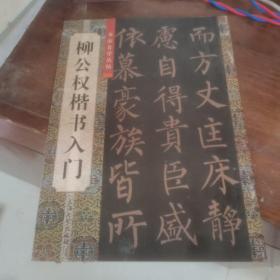 柳公权楷书入门
而方丈匡床静
虑自得贵臣盛
依慕豪族皆所